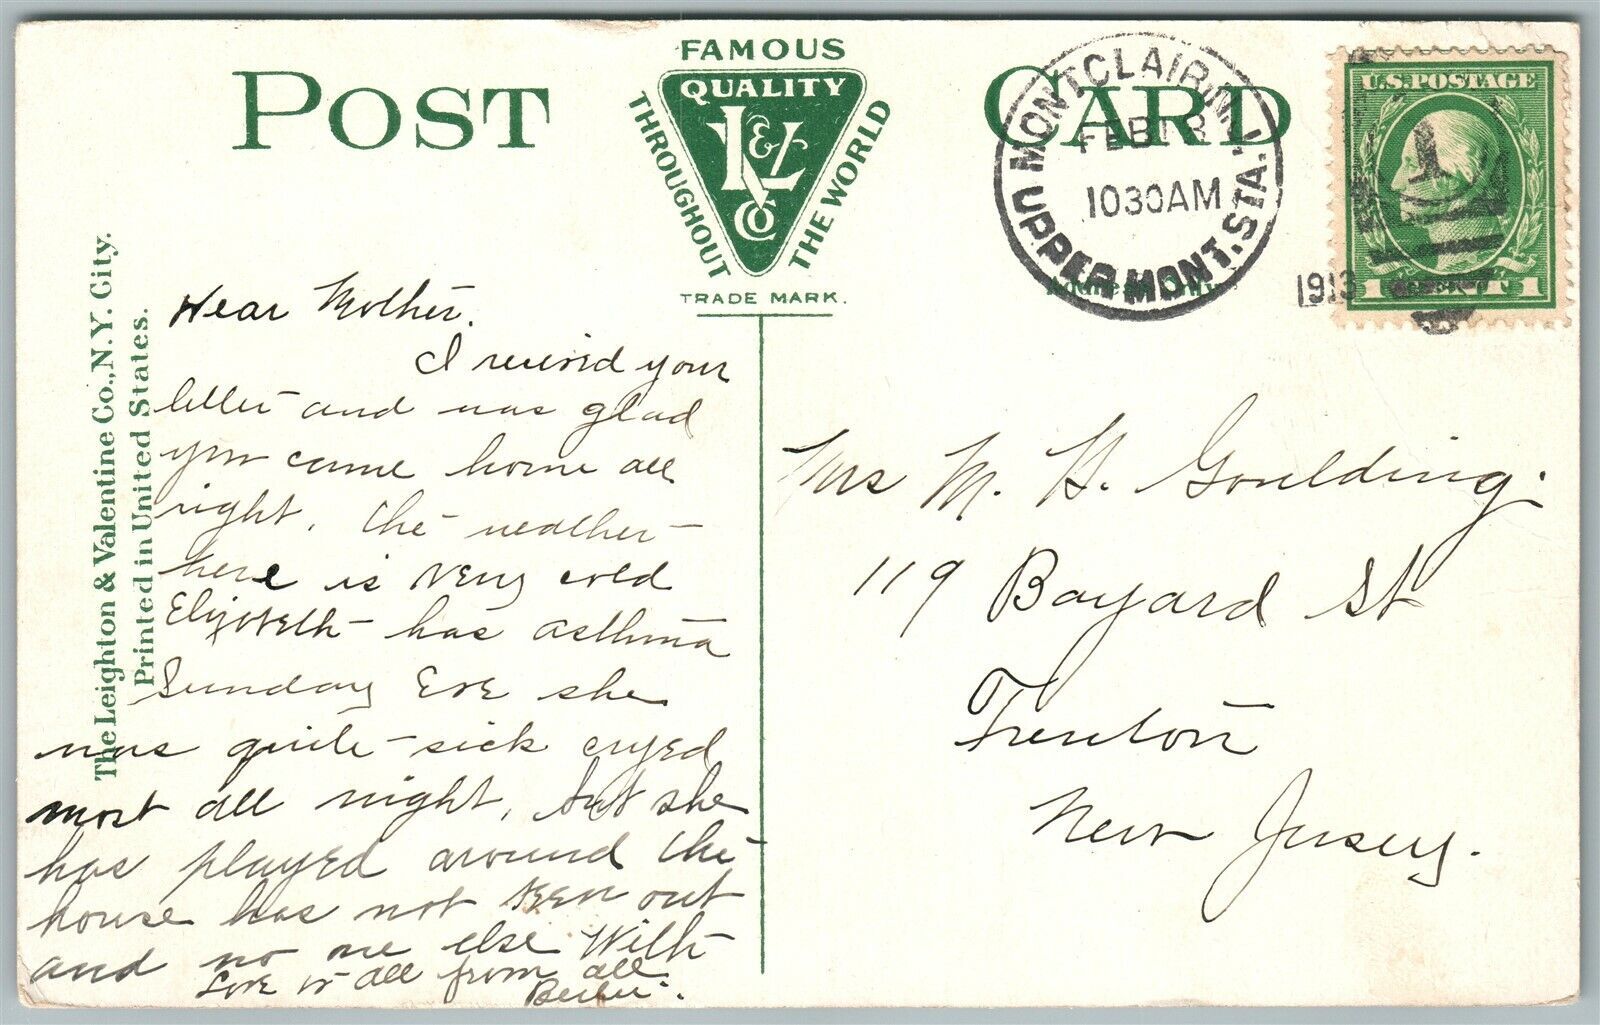 POST CARD
FAMOUS
QUALITY
L & V Co
THROUGHOUT
THE WORLD
TRADE MARK.
MONTCLAIR, N.J.
FEB 13
1030AM
UPPER MONT. STA.
1913
U.S. POSTAGE
1 1
The Leighton & Valentine Co., N.Y. City.
Printed in United States.
Dear Mother.
I recivid your
letter and was glad
you came home all
right. The weather
here is very cold
Elizabeth has asthma
Sunday Eve she
was quite sick cryed
most all night, but she
has played around the
house has not been out
and no one else With
Love to all from all
Mrs M. H. Goulding.
119 Bayard St
Trenton
New Jersey.